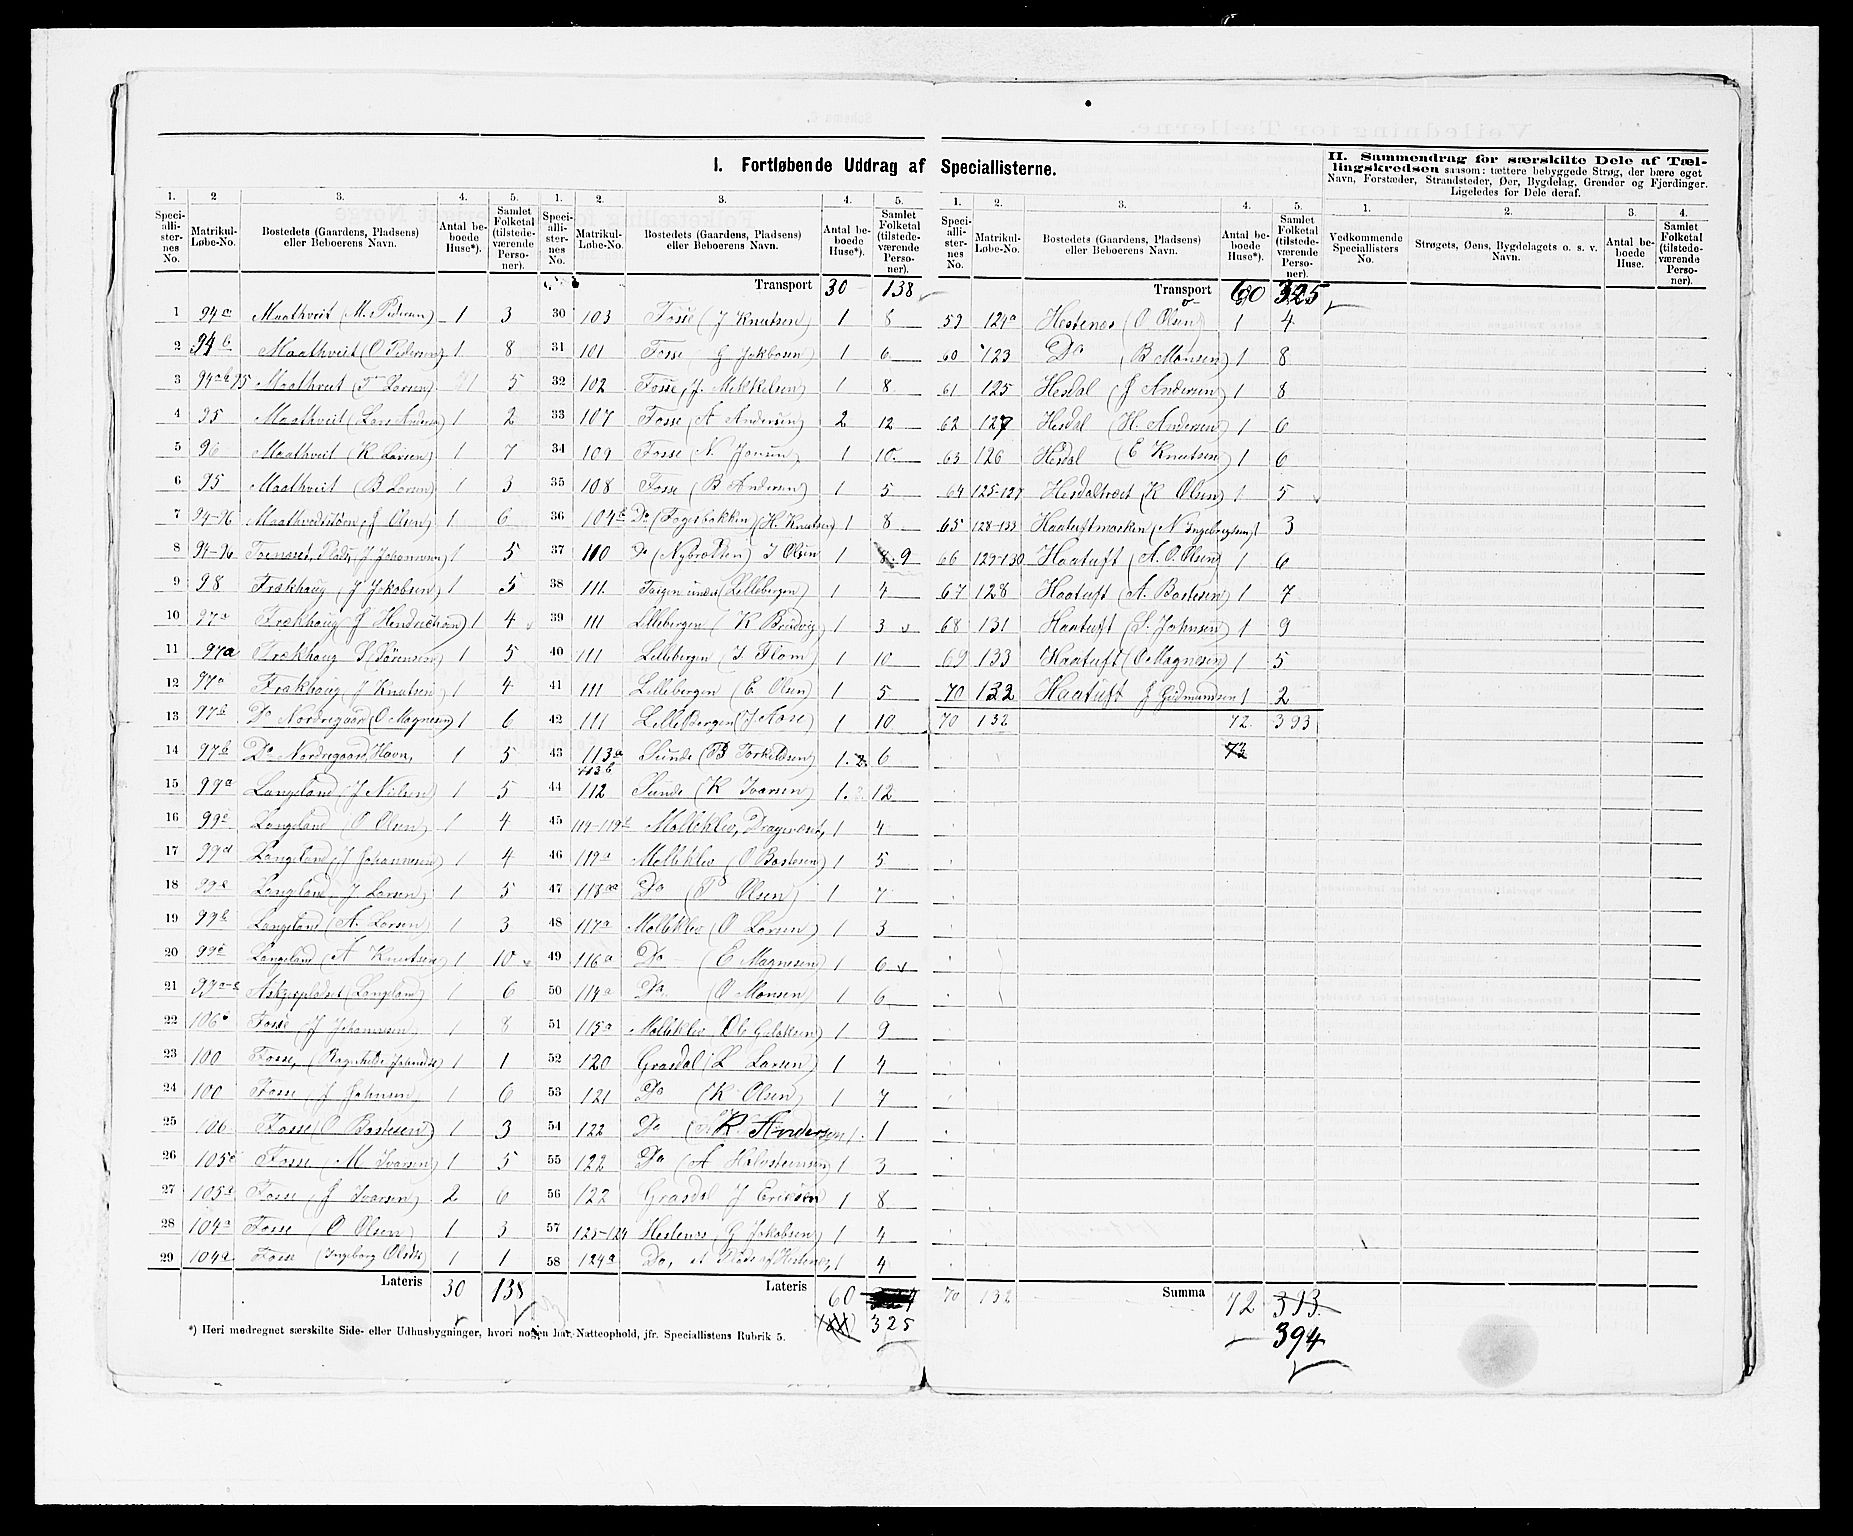 I. Fortløbende Uddrag af Speciallisterne.
II. Sammendrag for særskilte Dele af Tæl-
lingskredsen saasom: tættere bebyggede Strøg, der bære eget
Navn, Forstæder, Strandsteder, Øer, Bygdelag, Grender og Fjerdinger.
Ligeledes for Dele deraf.
1. 2 3. 4. 5. 1. 2. 3. 4. 5. 1. 2. 3. 4. 5. 1. 2. 3. 4.
Speciallisternes No. Matrikul-Løbe-No. Bostedets (Gaardens, Pladsens) eller Beboerens Navn. Antal beboede Huse*). Samlet Folketal (tilstedeværende Personer).
Speciallisternes No. Matrikul-Løbe-No. Bostedets (Gaardens, Pladsens) eller Beboerens Navn. Antal beboede Huse*). Samlet Folketal (tilstedeværende Personer).
Speciallisternes No. Matrikul-Løbe-No. Bostedets (Gaardens, Pladsens) eller Beboerens Navn. Antal beboede Huse*). Samlet Folketal (tilstedeværende Personer).
Vedkommende Speciallisters No. Strøgets, Øens, Bygdelagets o. s. v. Navn. Antal beboede Huse. Samlet Folketal (tilstedeværende Personer).
1 94a Maathveit (M. Pedersen) 1 3
2 94b Maathveit (O Pedersen) 1 8
3 94ab 95 Maathveit (T Larsen) 1 5
4 95 Maathveit (Lars Anders) 1 2
5 96 Maathveit (K Larsen) 1 7
6 95 Maathveit (B Larsen) 1 3
7 94-96 Maathvedstøen, J Olsen) 1 6
8 94-96 Plads, J Johannesen) 1 5
9 98 Frækhaug (J Jakobsen) 1 5
10 97a Frækhaug J 1 4
11 97a Frækhaug S Sörensen) 1 5
12 97a Frækhaug J Knutsen) 1 4
13 97b Do Nordregaard (O Magnesen) 1 6
14 97b Do Nordregaard, Havn, 1 5
15 99a Langeland (J Nilsen) 1 5
16 99c Langeland (O Olsen) 1 4
17 99d Langeland, J Johannesen) 1 4
18 99e Langeland J Larsen) 1 5
19 99b Langeland (A. Larsen) 1 3
20 99c Langeland (A Knutsen 1 10
21 (Langeland) 1 6
22 106 Fosse J Johannesen 1 8
23 100 Fosse, (Ragnhilde 1 1
24 100 Fosse J Johnsen, 1 6
25 106 Fosse (O Bastesen) 1 3
26 105 Fosse M Ivarsen) 1 5
27 105a Fosse (J Ivarsen) 2 6
28 104a Fosse (O Olsen) 1 3
29 104a Fosse (Ingeborg Olsdt) 1 1
Lateris 30 138
Transport 30 138
30 103 Fosse (J Knutsen) 1 8
31 101 Fosse G Jakbosen) 1 6
32 102 Fosse, J. Mikkelsen) 1 8
33 107 Fosse (A Andersen) 2 12
34 109 Fosse (N. 1 10
35 108 Fosse (B Andersen) 1 5
36 104b Do (Fagerbakken) (H. Knutsen) 1 8
37 110 Do (Nybrotten) J Olsen 1 9
38 111. under (Lillebergen) 1 4
39 111 Lillebergen (K 1 3
40 111 Lillebergen (J. Flom) 1 10
41 111 Lillebergen (E. Olsen) 1 5
42 111 Lillebergen (J Aase) 1 10
43 113a 113b Sunde (B Torkildsen) 1. 2. 6
44 112 Sunde (K Ivarsen) 1. 12
45 114-119b Mølleklev, 1 4
46 119a Mølleklev (O Bastesen) 1 5
47 118a Do (P Olsen) 1 7
48 117a Mølleklev (O Larsen) 1 3
49 116a Do (E Magnesen) 1 6
50 114a Do (O Monsen 1 6
51 115a Mølleklev 1 9
52 120 Grasdal (L Larsen) 1 4
53 121 Do (K Olsen) 1 7
54 122 Do (K. Andersen) 1
55 122 Do (A 1 3
56 122 Grasdal J Eriksen 1 8
57 123-124 Hestenes (G Jakobsen) 1 4
58 124a Do, 1 4
Lateris 60
325
Transport 60 325
59 124a Hestenes (O Olsen) 1 4
60 123 Do B Monsen) 1 8
61 125 Hesdal (J Andersen) 1 8
62 127 Hesdal (H. Andersen) 1 6
63 126 Hesdal (E Knutsen) 1 6
64 125-127 Hesdaltræet (K Olsen) 1 5
65 128-133 Haatuftmarken (N Ingebrigtsen) 1 3
66 129-130 Haatuft (A. O. Olsen) 1 6
67 128 Haatuft (A. Bastesen) 1 7
68 131 Haatuft (S. Johnsen) 1 9
69 133 Haatuft (O Magnesen) 1 5
70 132 Haatuft J Gudmundsen 1 2
70 132 72. 393
73
70 132 Summa 72 393
394
*) Heri medregnet særskilte Side- eller Udhusbygninger, hvori nogen har Natteophold, jfr. Speciallistens Rubrik 5.